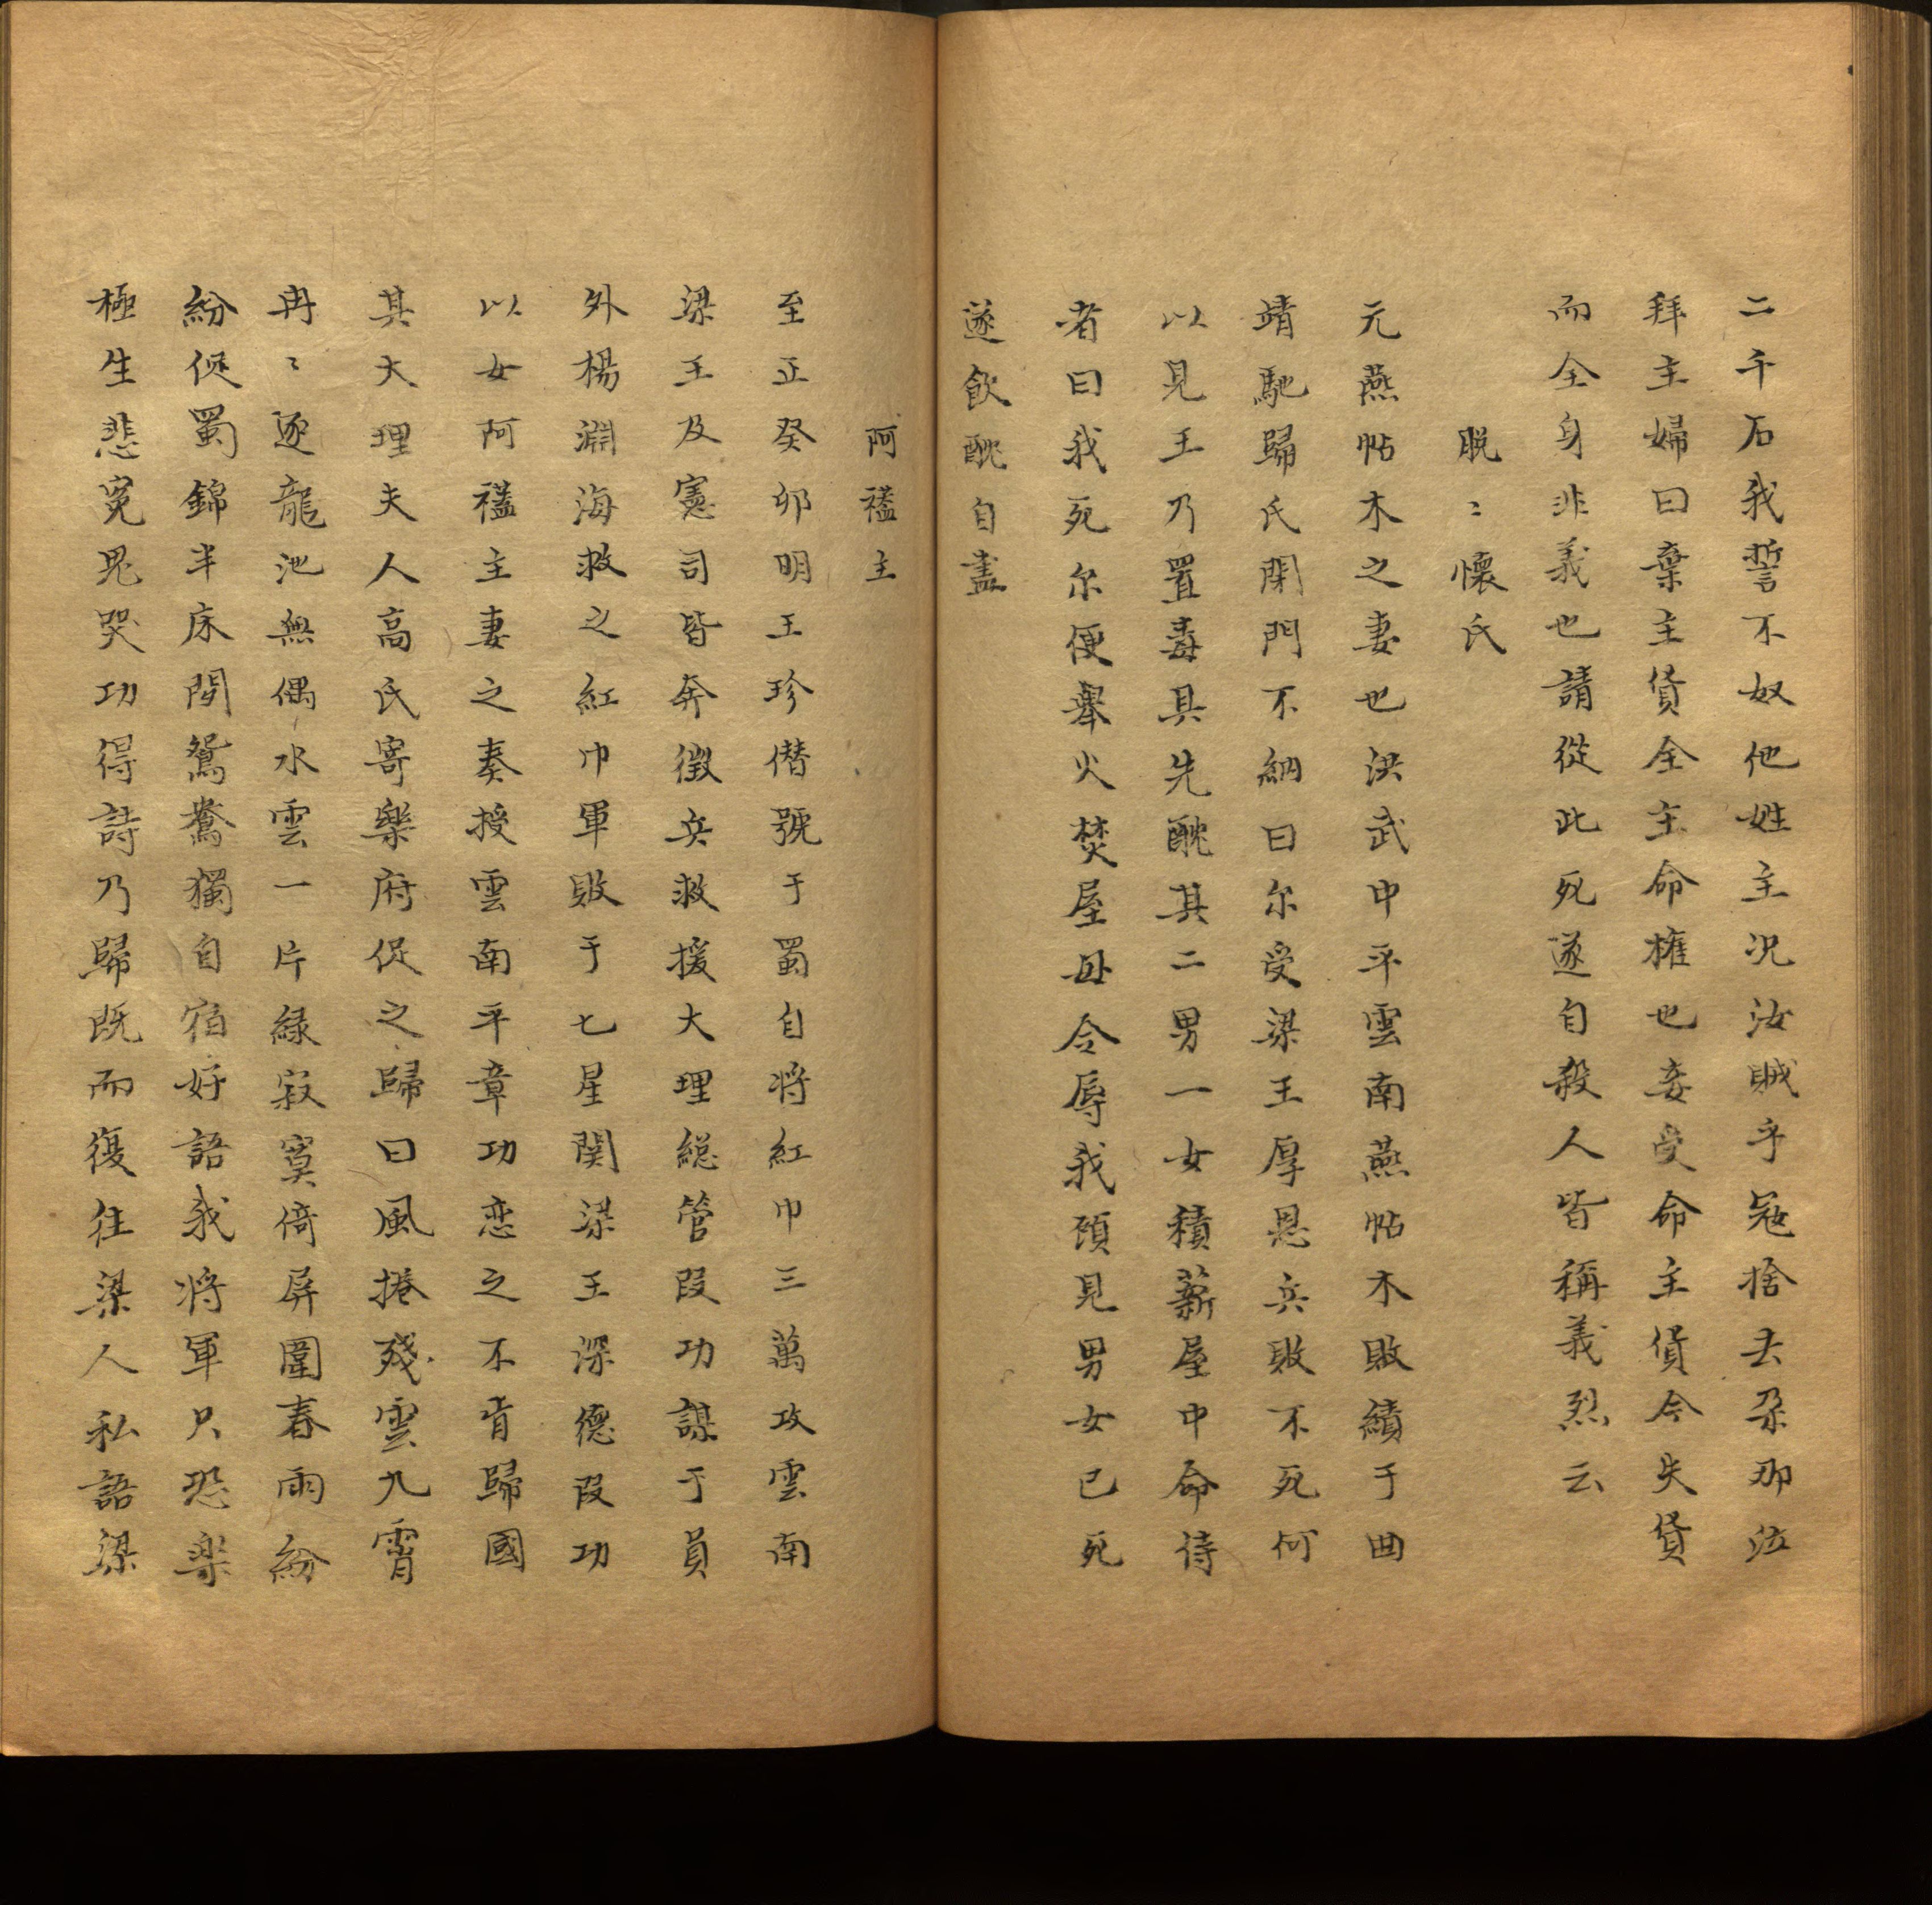 二千石我誓不奴他姓主况汝賊乎冦捨去朶那泣
拜主婦曰棄主貨全主命權也妾受命主貨今失貨
而全身非義也請從此死遂自殺人皆稱義烈云
脱〻懷氏
元燕帖木之妻也洪武中平雲南燕帖木敗績于曲
靖馳歸氏閉門不納曰尔受梁王厚恩兵敗不死何
以見王乃置毒具先酖其二男一女積薪屋中命侍
者曰我死尔便舉火焚屋毋令辱我頋見男女已死
遂飲酖自盡
阿䙝主
至正癸卯明王珍僣號于蜀自将紅巾三萬攻雲南
梁王及憲司皆奔徴兵救援大理総管段功謀于員
外楊淵海救之紅巾軍敗于七星関梁王深德段功
以女阿䙝主妻之奏授雲南平章功恋之不肯歸國
其大理夫人高氏寄樂府促之歸曰風捲殘雲九霄
冉〻逐龍池無偶水雲一片緑寂寞倚屏圍春雨紛
紛促蜀錦半床閒鴛鴦獨自宿好語我将軍只恐樂
極生悲寃鬼哭功得詩乃歸既而復往梁人私語梁